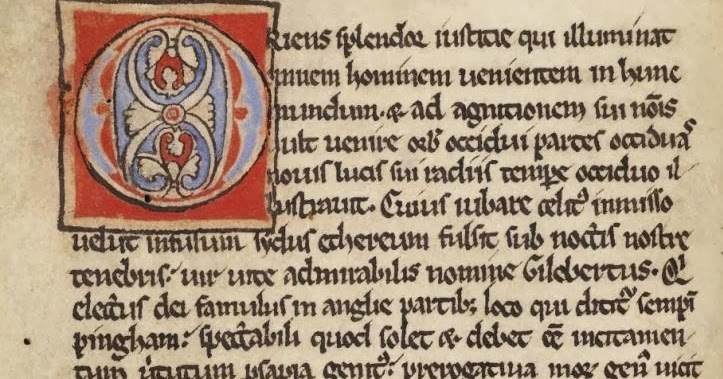 Oriens splendor iusticie qui illuminat
omnem hominem uenientem in hunc
mundum. & ad agnitionem sui nōīs
uult uenire oēs occidui partes occiduas
nouis lucis sui radiis tempe occiduo il
lustrauit. Cuius iubare celitꝰ inmisso
uelut infusum sydus ethereum fulsit sub noctis nostre
tenebris: uir uite admirabilis nomine Gilebertus. Q
electus dei famulus in anglie partibꝫ loco qui dicitꝰ sempī
pingham: spectabili quod solet & debet eē incitamen
tum genitꝰ: prerogatiua uicit